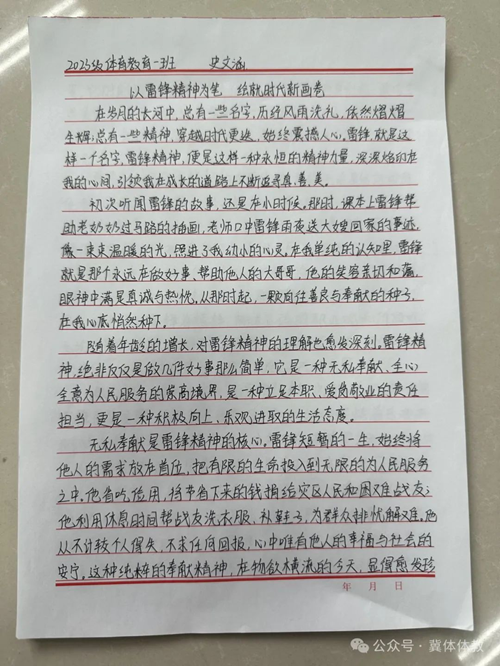 2023级体育教育一班 史文涵
以雷锋精神为笔 绘就时代新画卷
在岁月的长河中,总有一些名字,历经风雨洗礼,依然熠熠
生辉;总有一些精神,穿越时代更迭,始终震撼人心,雷锋,就是这
样一个名字,雷锋精神,便是这样一种永恒的精神力量,深深烙印在
我的心间,引领我在成长的道路上不断追寻真、善、美。
初次听闻雷锋的故事,还是在小时候。那时,课本上雷锋帮
助老奶奶过马路的插画,老师口中雷锋雨夜送大嫂回家的事迹,
像一束束温暖的光,照进了我幼小的心灵。在我单纯的认知里,雷锋
就是那个永远在做好事、帮助他人的大哥哥,他的笑容亲切和蔼,
眼神中满是真诚与热忱,从那时起,一颗向往善良与奉献的种子,
在我心底悄然种下。
随着年龄的增长,对雷锋精神的理解也愈发深刻。雷锋精
神,绝非仅仅是做几件好事那么简单,它是一种无私奉献、全心
全意为人民服务的崇高境界,是一种立足本职、爱岗敬业的责任
担当,更是一种积极向上、乐观进取的生活态度。
无私奉献是雷锋精神的核心。雷锋短暂的一生,始终将
他人的需求放在首位,把有限的生命投入到无限的为人民服务
之中。他省吃俭用,将节省下来的钱捐给灾区人民和困难战友;
他利用休息时间帮战友洗衣服、补鞋子,为群众排忧解难。他
从不计较个人得失,不求任何回报,心中唯有他人的幸福与社会的
安宁。这种纯粹的奉献精神,在物欲横流的今天,显得愈发珍
年 月 日
公众号·冀体体教